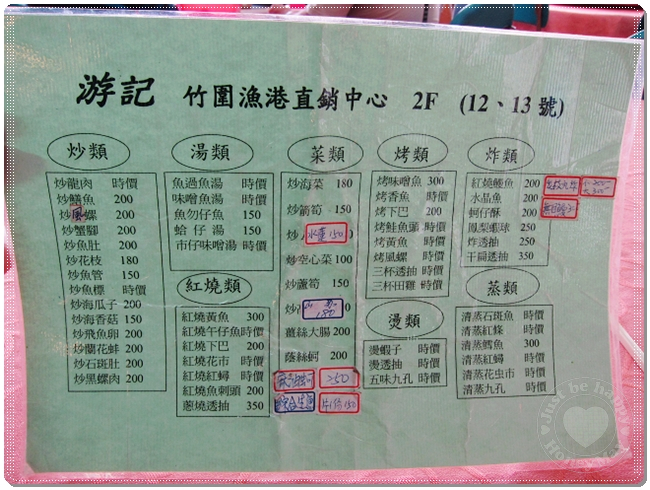 游記 竹圍漁港直銷中心 2F (12、13號)
炒類
炒龍肉 時價
炒鱔魚 200
炒風螺 200
炒蟹腳 200
炒魚肚 200
炒花枝 180
炒魚管 150
炒魚標 時價
炒海瓜子 200
炒海香菇 150
炒飛魚卵 200
炒蘭花蚌 200
炒石斑肚 200
炒黑螺肉 200
湯類
魚過魚湯 時價
味噌魚湯 時價
魚勿仔魚 150
蛤仔湯 150
市仔味噌湯 時價
紅燒類
紅燒黃魚 300
紅燒午仔魚時價
紅燒下巴 200
紅燒花市 時價
紅燒紅蟳 時價
紅燒魚刺頭 200
蔥燒透抽 350
菜類
炒海菜 180
炒箭筍 150
炒 水蓮 150
炒空心菜 100
炒蘆筍 150
炒 山 180
薑絲大腸 200
蔭絲蚵 200
250
150
烤類
烤味噌魚 300
烤香魚 時價
烤下巴 200
烤鮭魚頭 時價
烤黃魚 時價
烤風螺 時價
三杯透抽 時價
三杯田雞 時價
燙類
燙蝦子 時價
燙透抽 時價
五味九孔 時價
炸類
紅燒鰻魚 200
水晶魚 200
蚵仔酥 200
鳳梨蝦球 250
炸透抽 時價
干扁透抽 350
蒸類
清蒸石斑魚 時價
清蒸紅條 時價
清蒸鱈魚 300
清蒸紅蟳 時價
清蒸花虫市 時價
清蒸九孔 時價
Just be happy